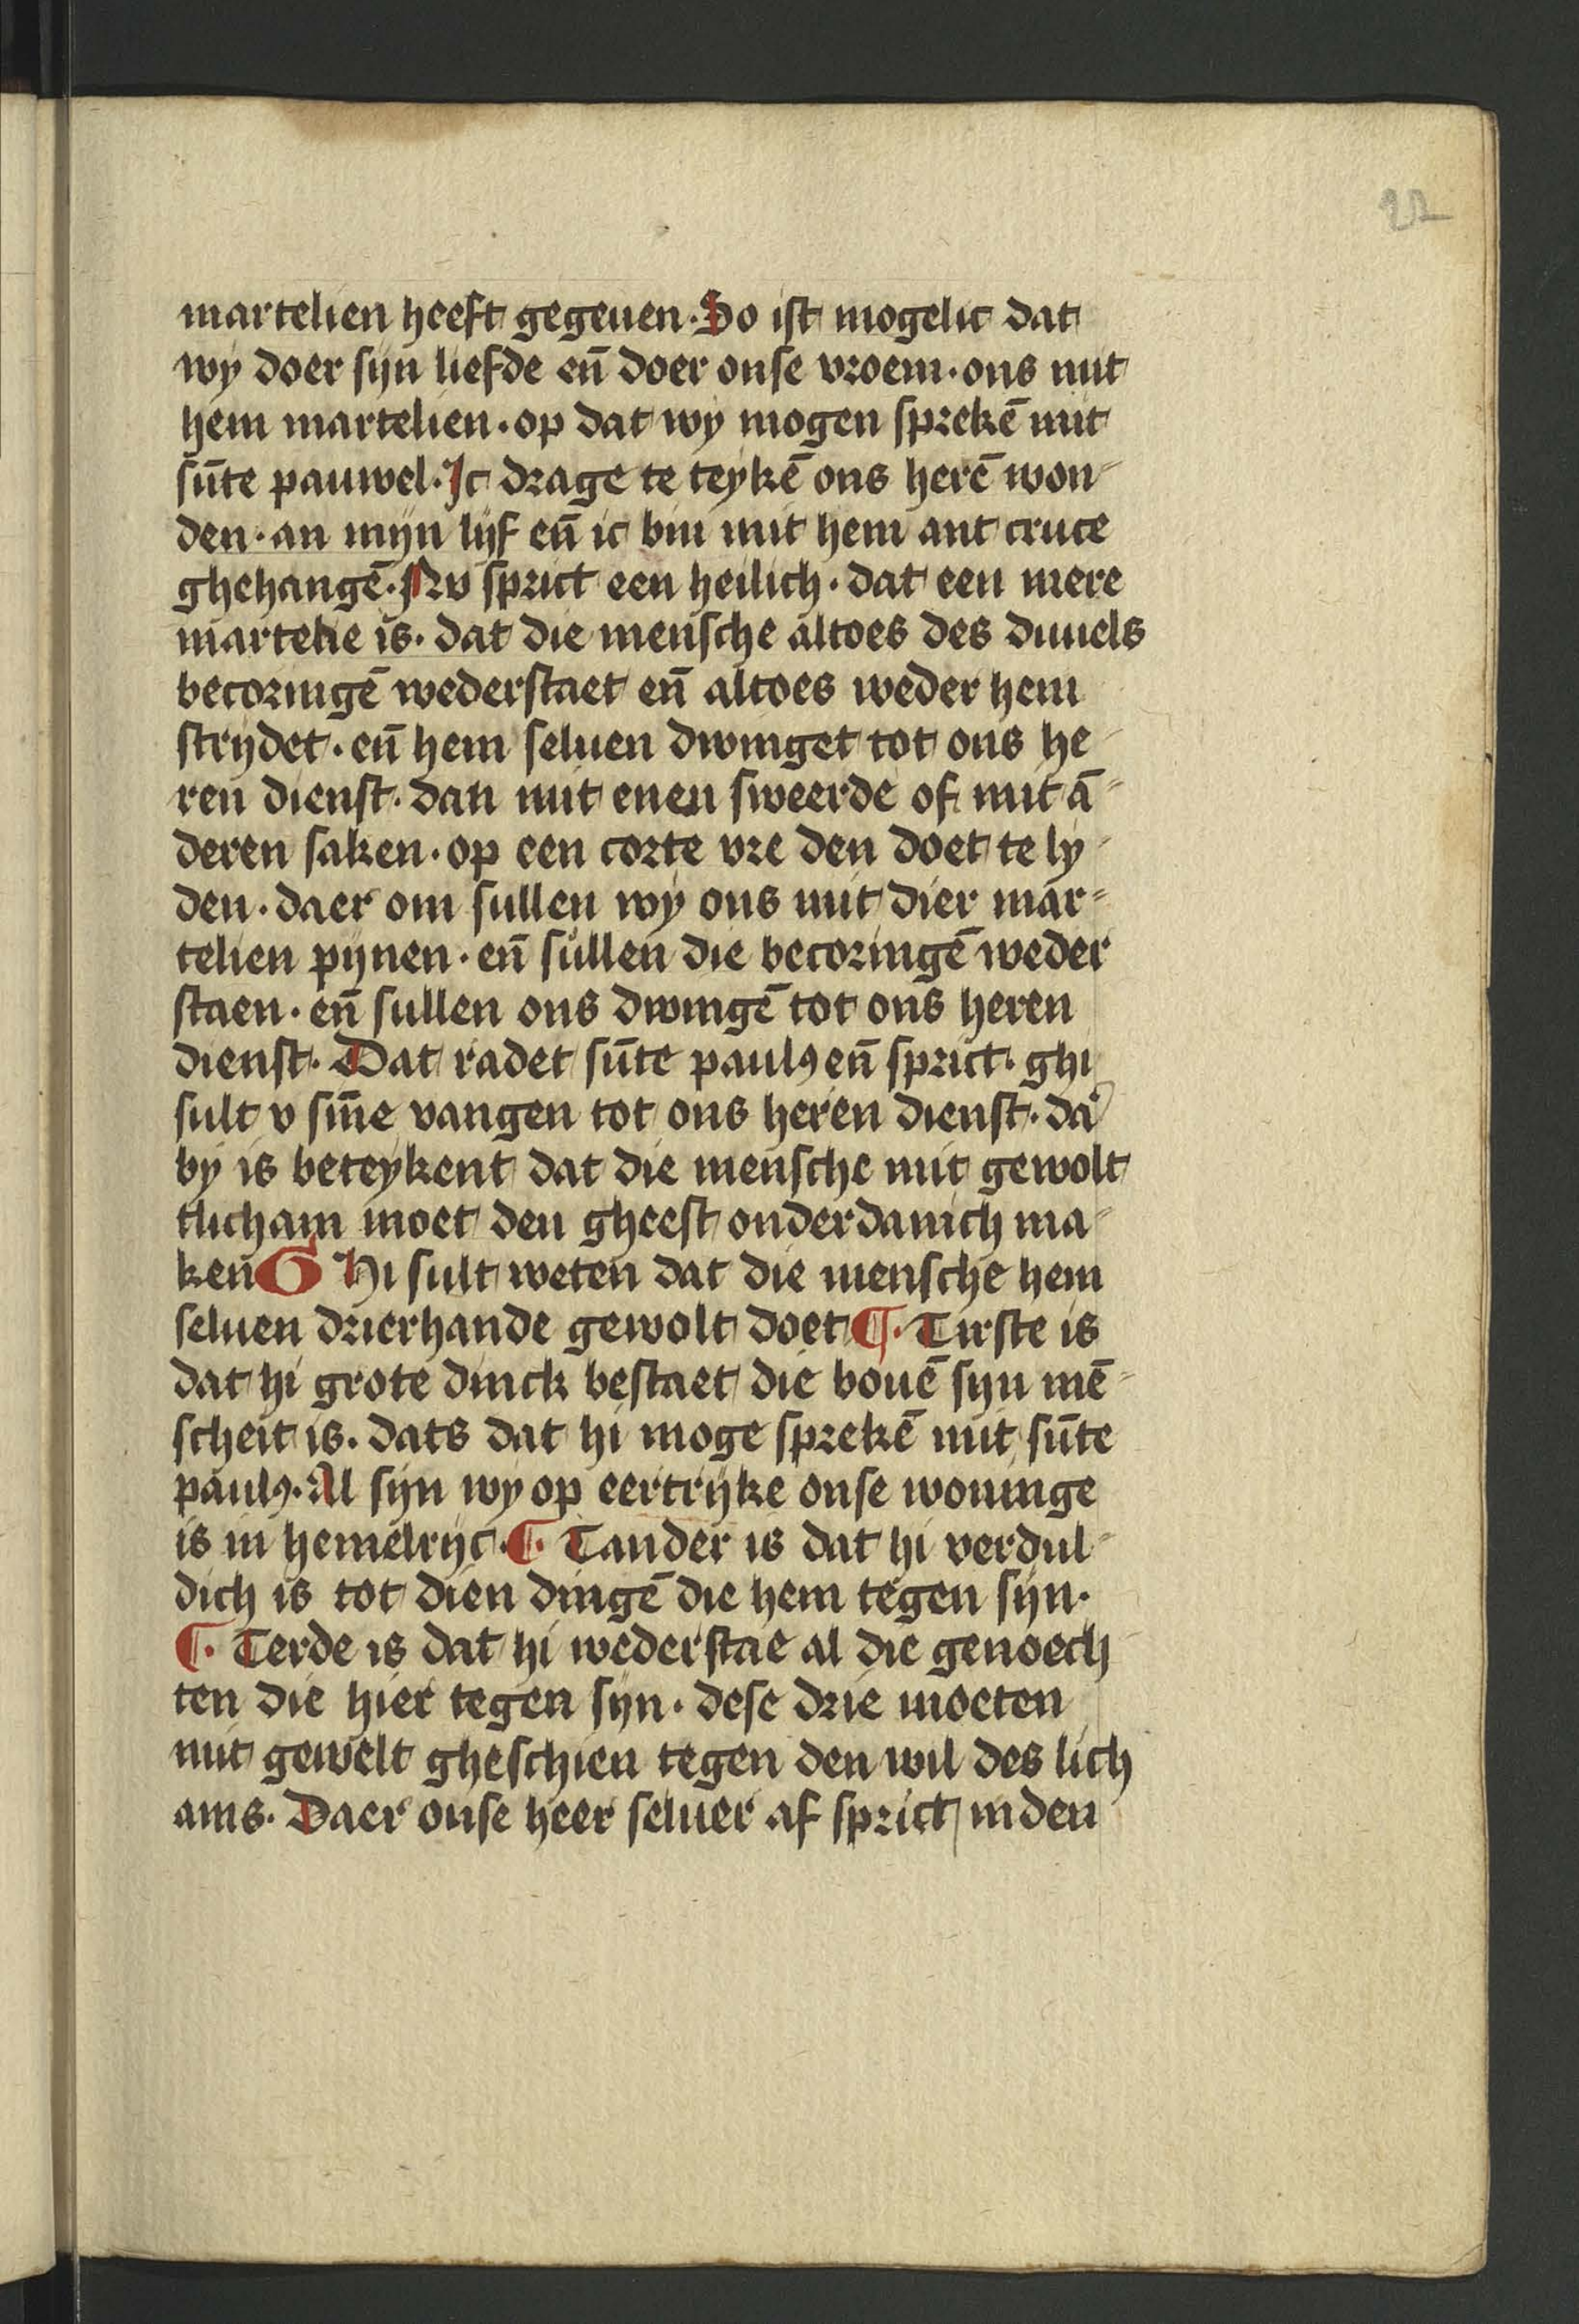 22
martelien heeft gegeuen. So ist mogelic dat
wy doer sijn liefde en̄ doer onse vroem. ons mit
hem martelien. op dat wy mogen sprekē mit
sūte pauwel. Ic drage te teykē ons herē won-
den. an mijn lijf en̄ ic bin mit hem ant cruce
ghehangē. Nv sprict een heilich. dat een mere
martelie is. dat die mensche altoes des duuels
becoringē wederstaet en̄ altoes weder hem
strijdet. en̄ hem seluen dwinget tot ons he-
ren dienst. dan mit enen sweerde of mit ā-
deren saken. op een corte vre den doet te ly-
den. daer om sullen wy ons mit dier mar-
telien pijnen. en̄ sullen die becoringē weder
staen. en̄ sullen ons dwingē tot ons heren
dienst. Dat radet sūte paulꝰ en̄ sprict. ghi
sult v sīne vangen tot ons heren dienst. da͛
by is beteykent dat die mensche mit gewolt
tlicham moet den gheest onderdanich ma-
ken G Hi sult weten dat die mensche hem
seluen drierhande gewolt doet ¶. Tirste is
dat hi grote dinck bestaet die bouē sijn mē-
scheit is. dats dat hi moge sprekē mit sūte
paulꝰ. Al sijn wy op eertrijke onse woninge
is in hemelrijc. ¶. Tander is dat hi verdul-
dich is tot dien dingē die hem tegen sijn.
¶. Terde is dat hi wederstae al die genoech
ten die hier tegen sijn. dese drie moeten
mit gewelt gheschien tegen den wil des lich
ams. Daer onse heer seluer af sprict in den